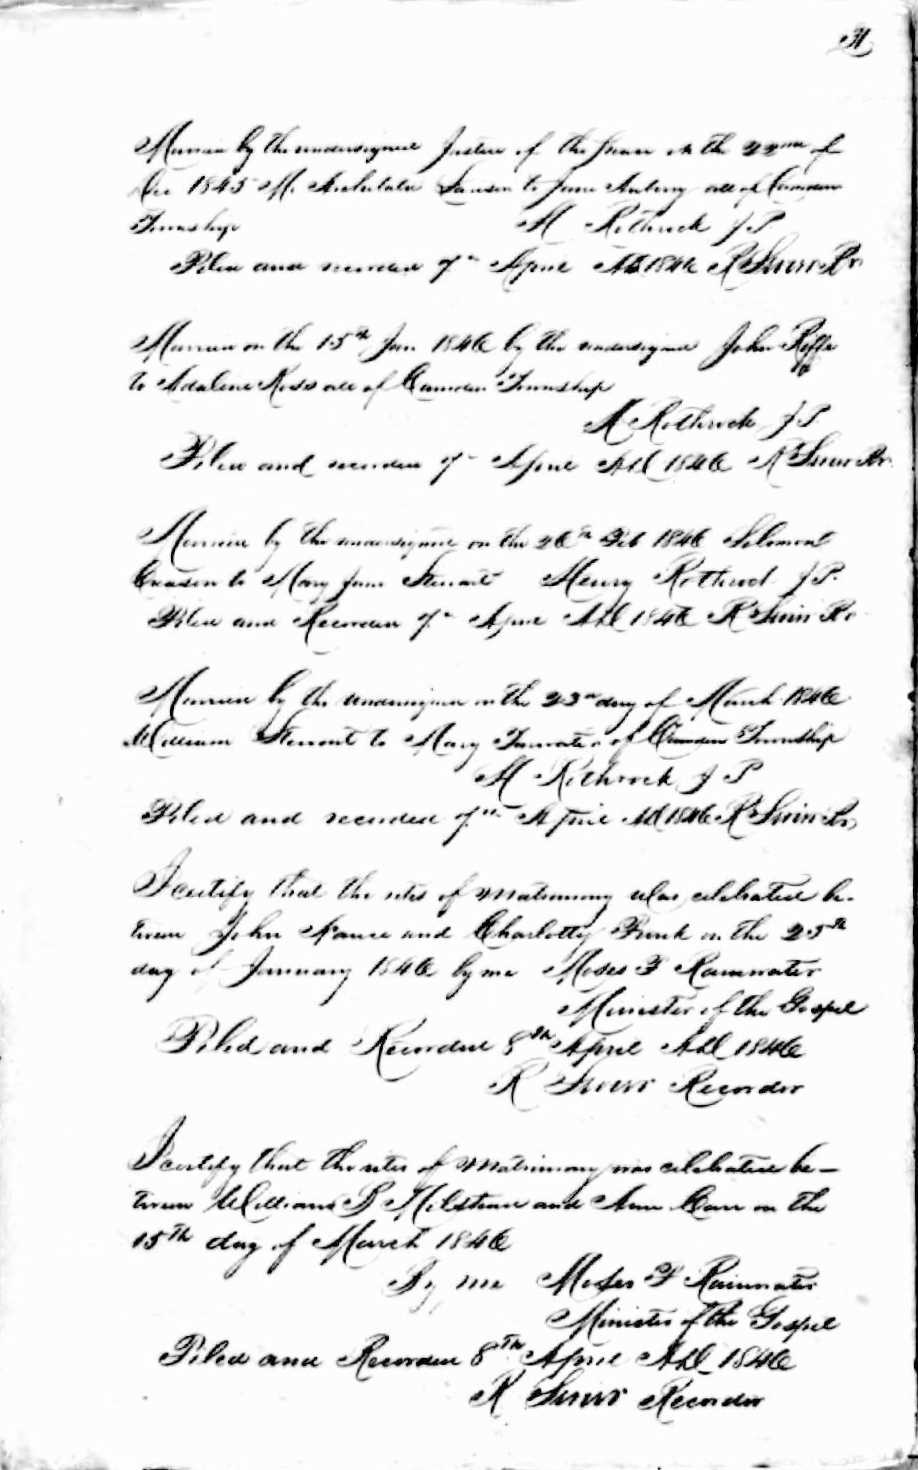 31
Married by the undersigned Justice of the Peace on the 22nd of
Dec 1845 M. Lawson to Jane Antony all of Camden
Township H Rothrock J P
Filed and recorded 7th April AD 1846 R Rr
Married on the 15th Jan 1846 by the undersigned John Roffe
to Adaline Ross all of Camden Township
H Rothrock J P
Filed and recorded 7th April AD 1846 R Rr
Married by the undersigned on the 26th Feb 1846 Solomon
Creason to Mary Jane Stewart Henry Rothrock J P.
Filed and Recorded 7th April AD 1846 R Rr
Married by the undersigned on the 23rd day of March 1846
William Stewart to Mary of Camden Township
H Rothrock J P
Filed and recorded 7th April AD 1846 R Rr
I certify that the rites of matrimony was celebrated be-
tween John Vance and Charlotty Funk on the 25th
day of January 1846 by me Moses F Rainwater
Minister of the Gospel
Filed and Recorded 8th April AD 1846
R Recorder
I certify that the rites of matrimony was celebrated be-
tween William B and Ann Carr on the
15th day of March 1846
By me Moses F Rainwater
Minister of the Gospel
Filed and Recorded 8th April AD 1846
R Recorder